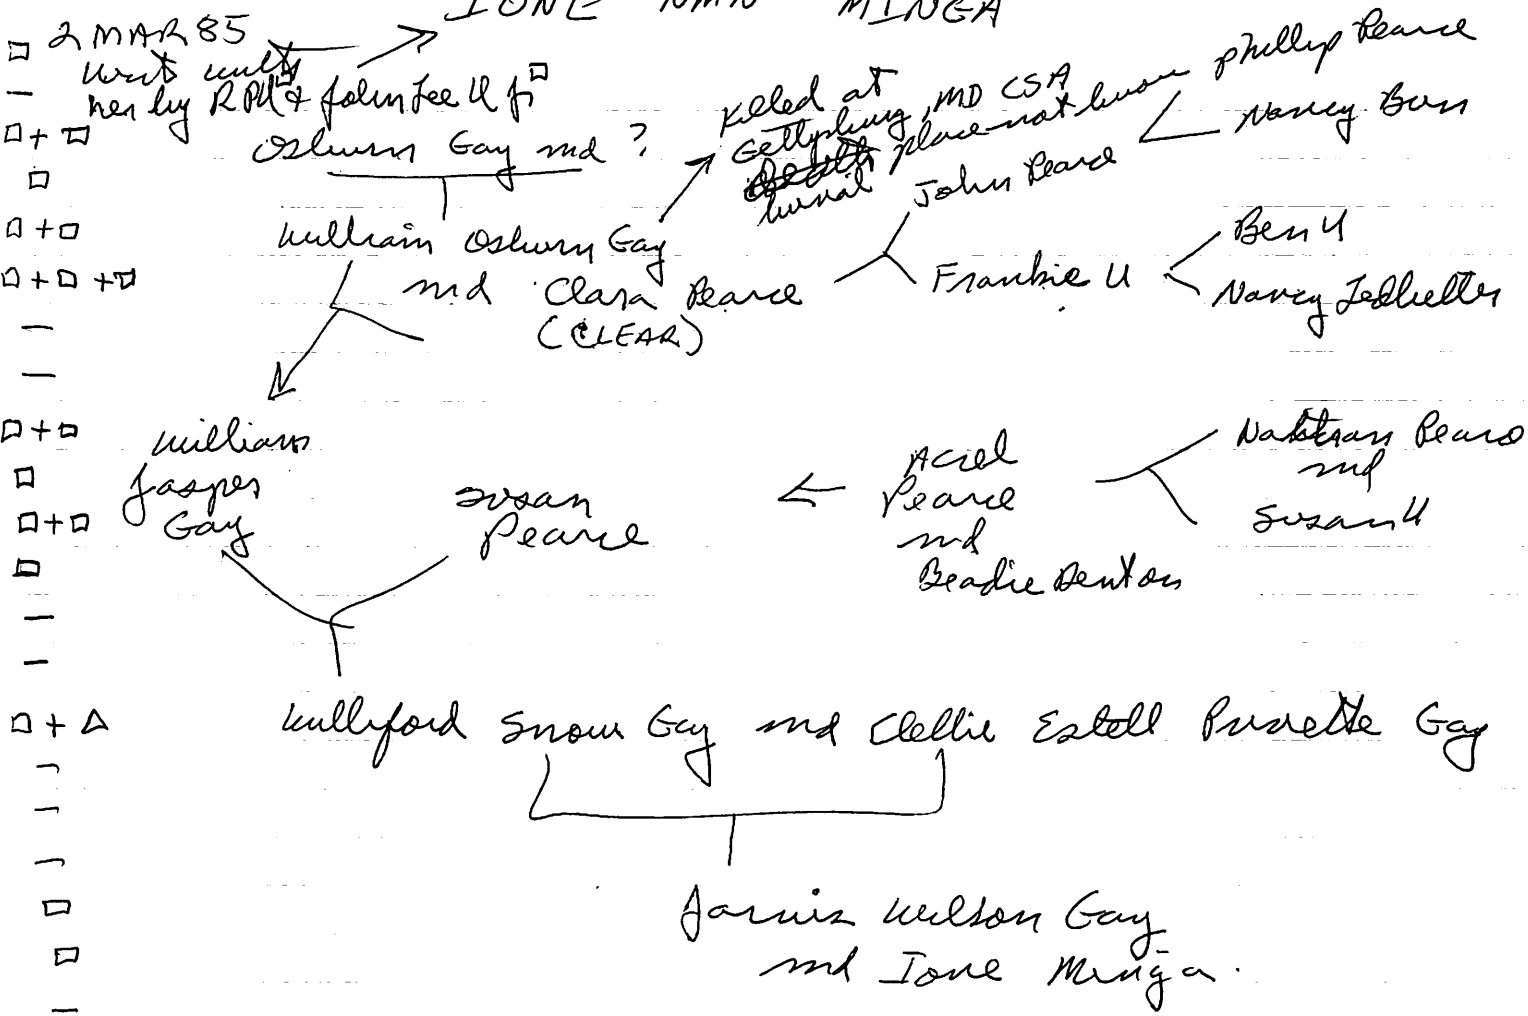 IONE NMN MINGA
2 MAR 85
her by RPU & John Lee U Jr
Osburn Gay md ?
Killed at
Gettysburg, MD CSA
place not known
burial
Phillip Pearce
Nancy Bunn
John Pearce
William Osburn Gay
md Clara Pearce
(CLEAR)
Frankie U
Ben U
Nancy Ledbetter
William
Jasper
Gay
Susan
Pearce
Acrel
Pearce
md
Beadie Denton
Nathan Pearce
md
Susan U
Williford Snow Gay md Clellie Estell Privette Gay
Jarvis Wilson Gay
md Ione Minga.